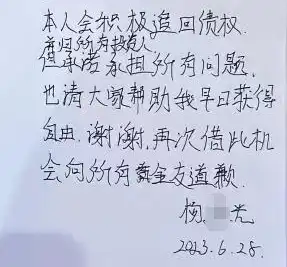 本人会积极追回债权
并归所有投资人
但承诺承担所有问题.
也请大家帮助我早日获得
自由.谢谢.再次借此机
会向所有金友道歉.
杨 光
2023.6.25.